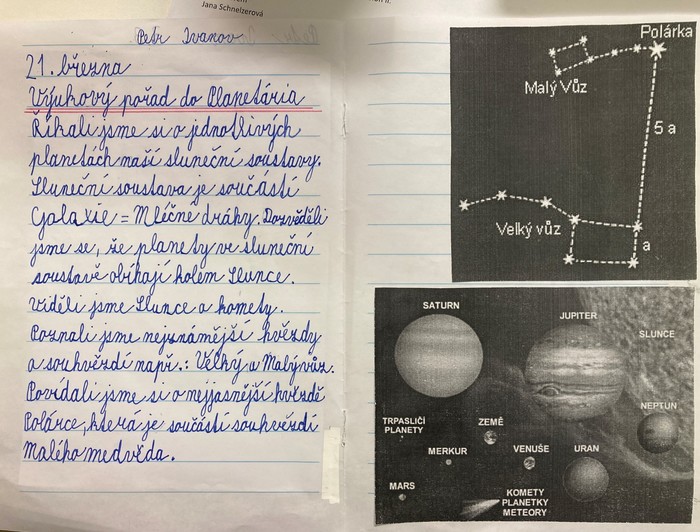 Jana Schnelzerová
Petr Ivanov
21. března
Výukový pořad do Planetária
Říkali jsme si o jednotlivých
planetách naší sluneční soustavy.
Sluneční soustava je součástí
Galaxie = Mléčné dráhy. Dozvěděli
jsme se, že planety ve sluneční
soustavě obíhají kolem Slunce.
Viděli jsme Slunce a komety.
Poznali jsme nejznámější hvězdy
a souhvězdí např.: Velký a Malý vůz.
Povídali jsme si o nejjasnější hvězdě
Polárce, která je součástí souhvězdí
Malého medvěda.
Polárka
Malý Vůz
5 a
Velký vůz
a
SATURN
JUPITER
SLUNCE
NEPTUN
TRPASLIČÍ
PLANETY
ZEMĚ
MERKUR
VENUŠE
URAN
MARS
KOMETY
PLANETKY
METEORY